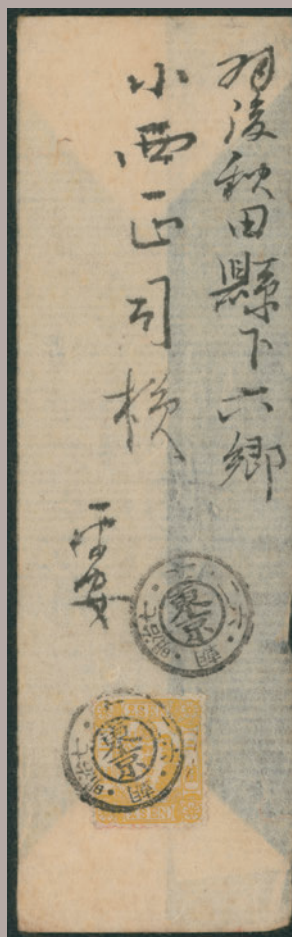 羽後秋田縣下六郷
小西正司様
平安
東京
東京
SEN